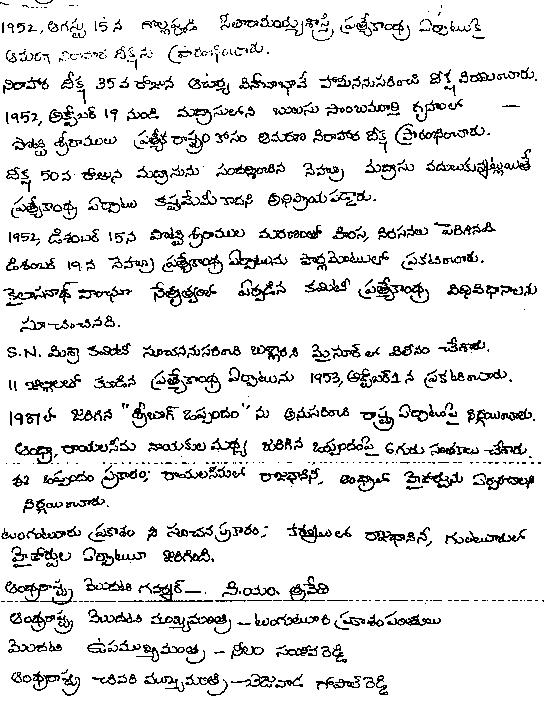 1952, ఆగస్టు 15న గొల్లపూడి సీతారామయ్యశాస్త్రి ప్రత్యేకాంధ్ర ఏర్పాటుకై
ఆమరణ నిరాహార దీక్షను ప్రారంభించారు.
నిరాహార దీక్ష 35వ రోజున ఆచార్య వినోబాభావే హామీననుసరించి దీక్ష విరమించారు.
1952, అక్టోబర్ 19 నుండి మద్రాసులోని బులుసు సాంబమూర్తి గృహంలో —
పొట్టి శ్రీరాములు ప్రత్యేక రాష్ట్రం కోసం ఆమరణ నిరాహార దీక్ష ప్రారంభించారు.
దీక్ష 50వ రోజున మద్రాసును సందర్శించిన నెహ్రు మద్రాసు వదులుకున్నట్లయితే
ప్రత్యేకాంధ్ర ఏర్పాటు కష్టమేమీ కాదని అభిప్రాయపడ్డారు.
1952, డిశంబర్ 15న పొట్టి శ్రీరాముల మరణంతో హింస, నిరసనలు పెరిగినవి
డిశంబర్ 19న నెహ్రు ప్రత్యేకాంధ్ర ఏర్పాటును పార్లమెంటులో ప్రకటించారు.
కైలాసనాథ్ వాంఛూ నేతృత్వంలో ఏర్పడిన కమిటీ ప్రత్యేకాంధ్ర విధివిధానాలను
సూచించినది.
S.N. మిశ్రా కమిటీ సూచననుసరించి బళ్ళారిని మైసూర్ లో విలీనం చేశారు.
11 జిల్లాలతో కూడిన ప్రత్యేకాంధ్ర ఏర్పాటును 1953, అక్టోబర్ 1న ప్రకటించారు.
1937లో జరిగిన "శ్రీబాగ్ ఒప్పందం" ను అనుసరించి రాష్ట్ర ఏర్పాటుపై నిర్ణయించారు.
ఆంధ్రా, రాయలసీమ నాయకుల మధ్య జరిగిన ఒప్పందంపై 6గురు సంతకాలు చేశారు.
ఈ ఒప్పందం ప్రకారం; రాయలసీమలో రాజధానిని, ఆంధ్రాలో హైకోర్టును ఏర్పరచాలని
నిర్ణయించారు.
టంగుటూరు ప్రకాశం ని సూచన ప్రకారం; కర్నూలులో రాజధానిని, గుంటూరులో
హైకోర్టుల ఏర్పాటు జరిగింది.
ఆంధ్రరాష్ట్ర మొదటి గవర్నర్ —. సి.యం. త్రివేది
ఆంధ్రరాష్ట్ర మొదటి ముఖ్యమంత్రి — టంగుటూరి ప్రకాశం పంతులు
మొదటి ఉపముఖ్యమంత్రి — నీలం సంజీవరెడ్డి
ఆంధ్రరాష్ట్ర చివరి ముఖ్యమంత్రి — బెజవాడ గోపాల్ రెడ్డి